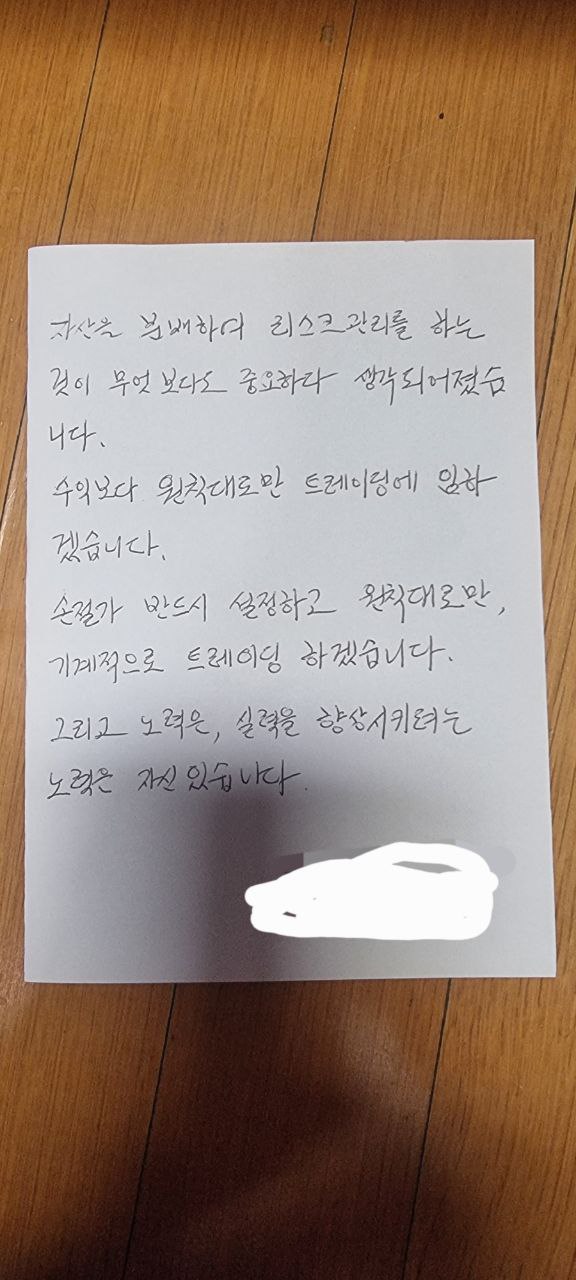 자산을 분배하여 리스크관리를 하는
것이 무엇 보다도 중요하다 생각되어졌습
니다.
수익보다 원칙대로만 트레이딩에 임하
겠습니다.
손절가 반드시 설정하고 원칙대로만,
기계적으로 트레이딩 하겠습니다.
그리고 노력은, 실력을 향상시키려는
노력은 자신 있습니다.